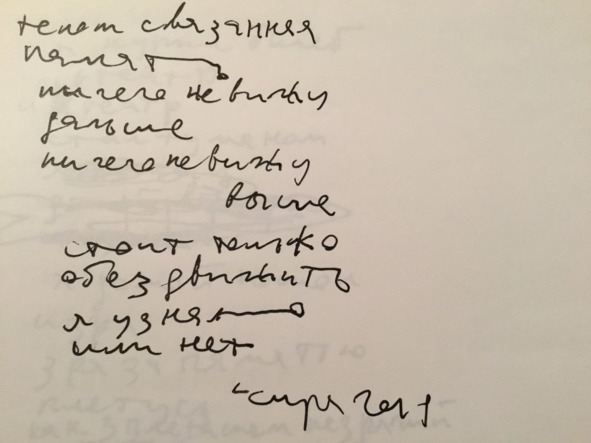 тепом связанная
память
ничего не вижу
дальше
ничего не вижу
выше
стоит только
обездвижить
я узнал
или нет